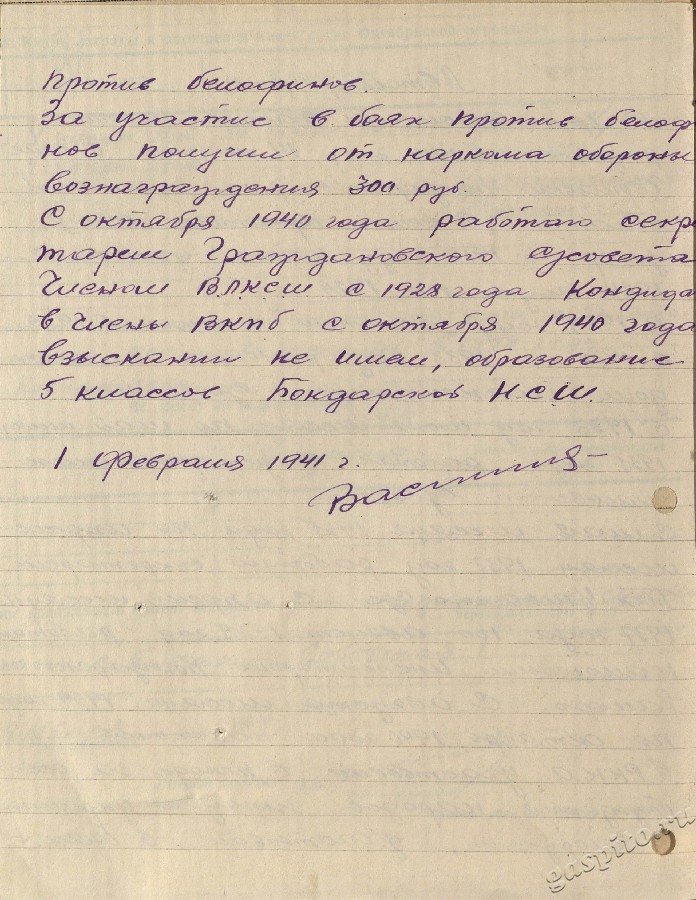 против белофинов.
За участие в боях против белоф
нов получил от наркома обороны
вознаграждения 300 руб.
С октября 1940 года работаю секре
тарем Граждановского с/совета
Членом ВЛКСМ с 1928 года Кондида
в члены ВКПб с октября 1940 года
взыскании не имел, образование
5 классов Бондарской НСШ.
1 Февраля 1941 г.
gaspito.ru